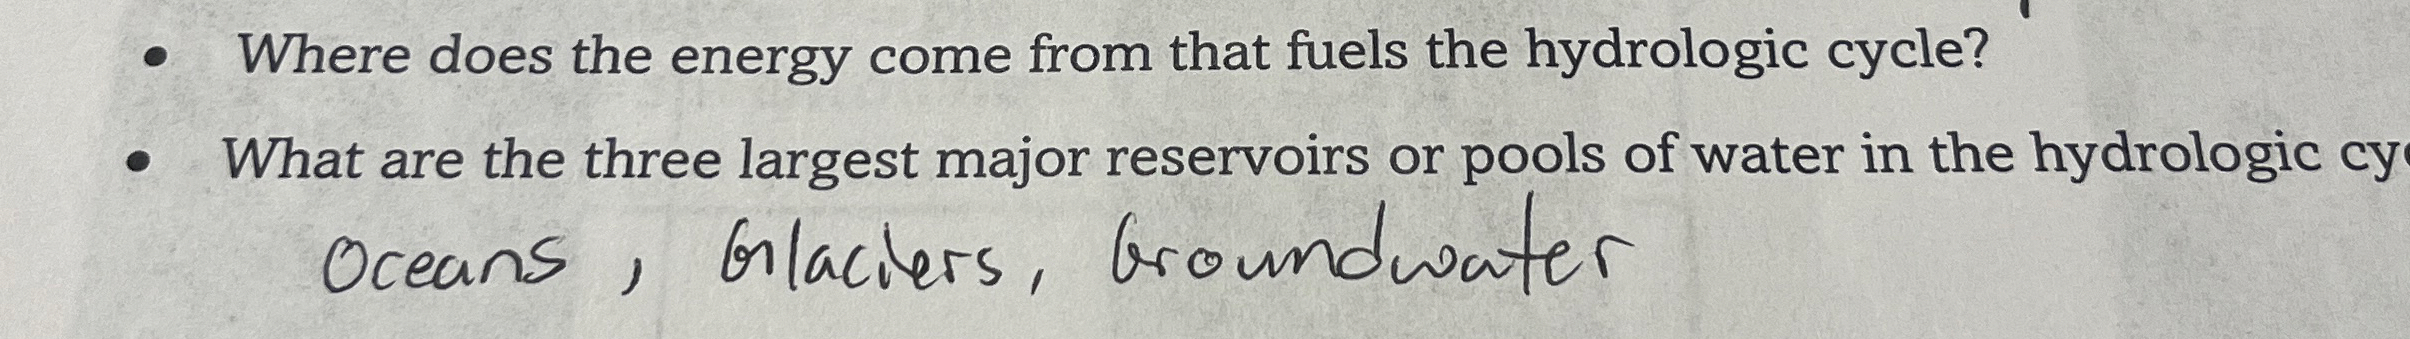 • Where does the energy come from that fuels the hydrologic cycle?
• What are the three largest major reservoirs or pools of water in the hydrologic cy
Oceans, Glaciers, Groundwater